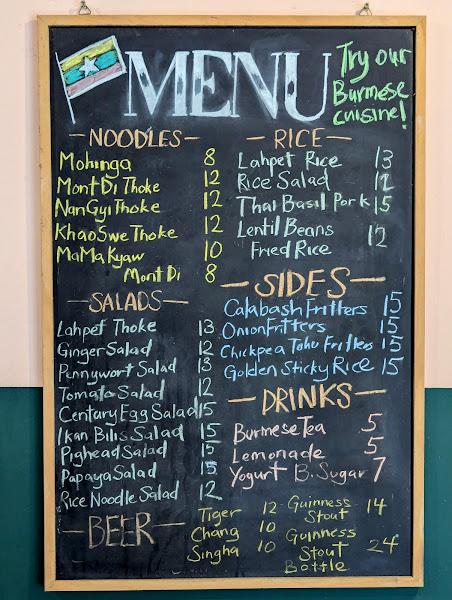 MENU
Try our
Burmese
cuisine!
NOODLES
Mohinga 8
Mont Di Thoke 12
Nan Gyi Thoke 12
Khao Swe Thoke 12
Ma Ma Kyaw 10
Mont Di 8
SALADS
Lahpet Thoke 13
Ginger Salad 12
Pennywort Salad 13
Tomato Salad 12
Century Egg Salad 15
Ikan Bilis Salad 15
Pighead Salad 15
Papaya Salad 15
Rice Noodle Salad 12
RICE
Lahpet Rice 13
Rice Salad 12
Thai Basil Pork 15
Lentil Beans
Fried Rice 12
SIDES
Calabash Fritters 15
Onion Fritters 15
Chickpea Tohu Fritters 15
Golden Sticky Rice 15
DRINKS
Burmese Tea 5
Lemonade 5
Yogurt B. Sugar 7
BEER
Tiger 12
Chang 10
Singha 10
Guinness
Stout 14
Guinness
Stout 24
Bottle